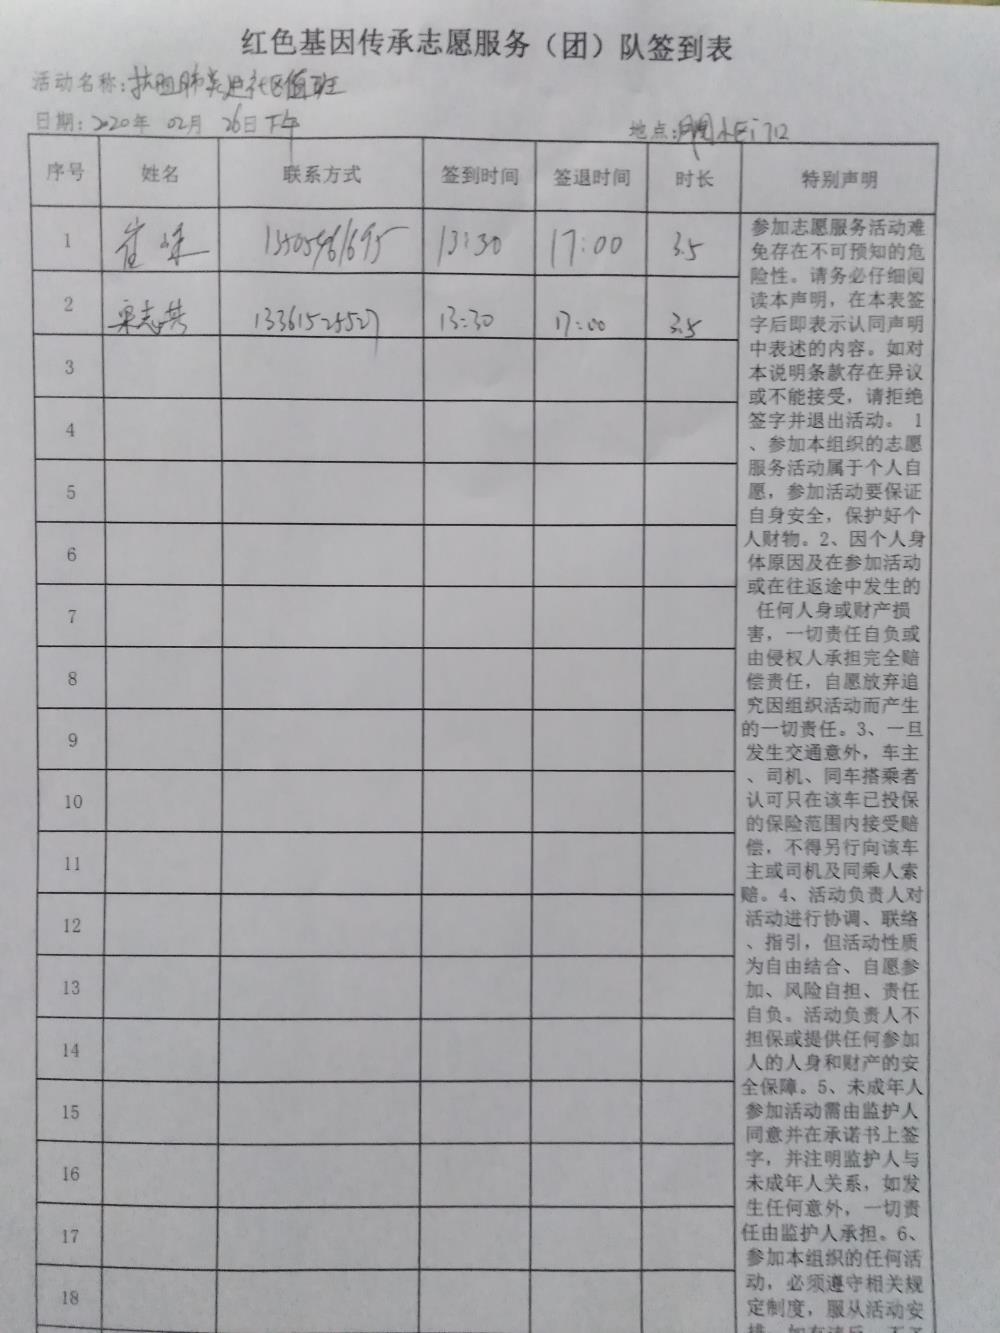 红色基因传承志愿服务（团）队签到表
活动名称：抗血肺炎进社区值班
日期：2020年 02月 26日下午
地点：小区门口
序号 姓名 联系方式 签到时间 签退时间 时长 特别声明
1 崔 13505961695 13:30 17:00 3.5
2 栗志英 13361525527 13:30 17:00 3.5
3
4
5
6
7
8
9
10
11
12
13
14
15
16
17
18
参加志愿服务活动难
免存在不可预知的危
险性。请务必仔细阅
读本声明，在本表签
字后即表示认同声明
中表述的内容。如对
本说明条款存在异议
或不能接受，请拒绝
签字并退出活动。 1
、参加本组织的志愿
服务活动属于个人自
愿，参加活动要保证
自身安全，保护好个
人财物。2、因个人身
体原因及在参加活动
或在往返途中发生的
任何人身或财产损
害，一切责任自负或
由侵权人承担完全赔
偿责任，自愿放弃追
究因组织活动而产生
的一切责任。3、一旦
发生交通意外，车主
、司机、同车搭乘者
认可只在该车已投保
的保险范围内接受赔
偿，不得另行向该车
主或司机及同乘人索
赔。4、活动负责人对
活动进行协调、联络
、指引，但活动性质
为自由结合、自愿参
加、风险自担、责任
自负。活动负责人不
担保或提供任何参加
人的人身和财产的安
全保障。5、未成年人
参加活动需由监护人
同意并在承诺书上签
字，并注明监护人与
未成年人关系，如发
生任何意外，一切责
任由监护人承担。6、
参加本组织的任何活
动，必须遵守相关规
定制度，服从活动安